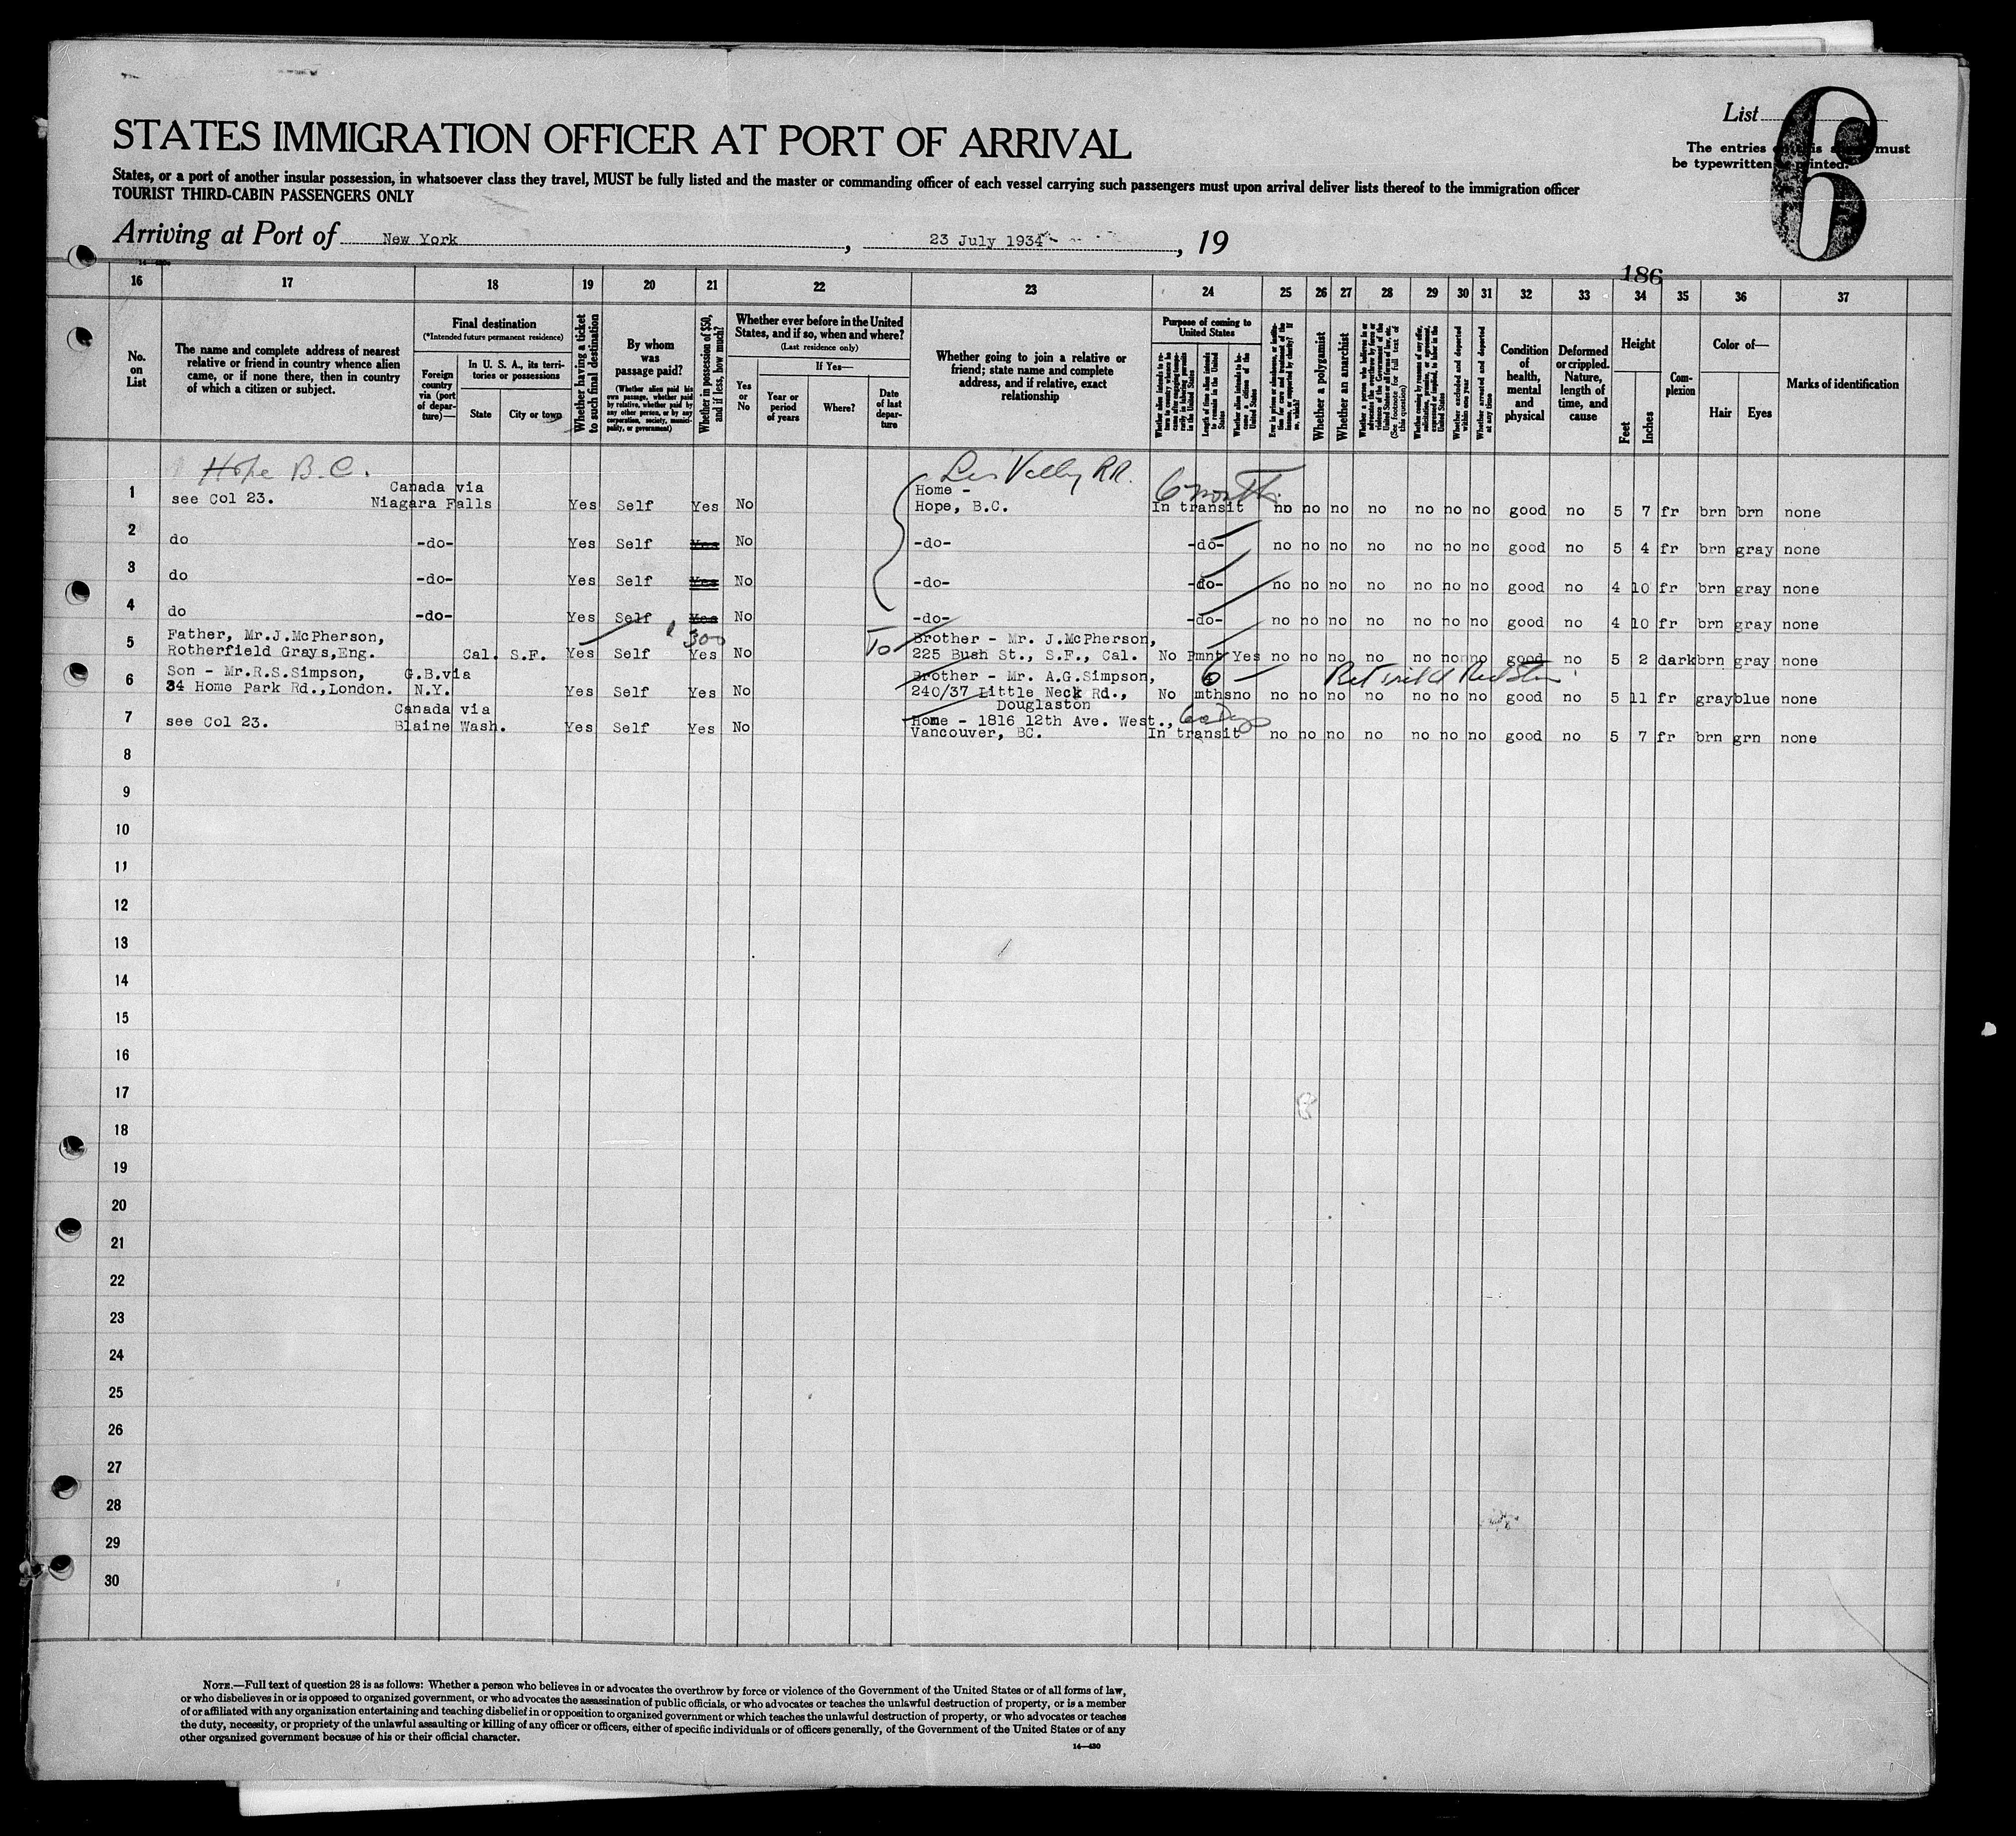 List
6
The entries on this sheet must
be typewritten or printed.
STATES IMMIGRATION OFFICER AT PORT OF ARRIVAL
States, or a port of another insular possession, in whatsoever class they travel, MUST be fully listed and the master or commanding officer of each vessel carrying such passengers must upon arrival deliver lists thereof to the immigration officer
TOURIST THIRD-CABIN PASSENGERS ONLY
Arriving at Port of New York, 23 July 1934, 19
186
16 17 18 19 20 21 22 23 24 25 26 27 28 29 30 31 32 33 34 35 36 37
No. on List
The name and complete address of nearest relative or friend in country whence alien came, or if none there, then in country of which a citizen or subject.
Final destination
(*Intended future permanent residence)
Foreign country via (port of departure)—
In U. S. A., its territories or possessions
State
City or town
Whether having a ticket to such final destination
By whom was passage paid?
(Whether alien paid his own passage, whether paid by relative, whether paid by any other person, or by any corporation, society, municipality, or government)
Whether in possession of $50, and if less, how much?
Whether ever before in the United States, and if so, when and where?
(Last residence only)
Yes or No
If Yes—
Year or period of years
Where?
Date of last departure
Whether going to join a relative or friend; state name and complete address, and if relative, exact relationship
Purpose of coming to United States
Whether alien intends to return to country whence he came after engaging temporarily in laboring pursuits in the United States
Length of time alien intends to remain in the United States
Whether alien intends to become a citizen of the United States
Ever in prison or almshouse, or institution for care and treatment of the insane, or supported by charity? If so, which?
Whether a polygamist
Whether an anarchist
Whether a person who believes in or advocates the overthrow by force or violence of the Government of the United States or all forms of law, etc. (See footnote for full text of this question)
Whether coming by reason of any offer, solicitation, promise, or agreement, expressed or implied, to labor in the United States
Whether excluded and deported within one year
Whether arrested and deported at any time
Condition of health, mental and physical
Deformed or crippled. Nature, length of time, and cause
Height
Feet
Inches
Complexion
Color of—
Hair
Eyes
Marks of identification
Hope B.C.
Valley RR.
6 months
1 see Col 23. Canada via Niagara Falls Yes Self Yes No Home - Hope, B.C. In transit no no no no no no no good no 5 7 fr brn brn none
2 do -do- Yes Self Yes No -do- -do- no no no no no no no good no 5 4 fr brn gray none
3 do -do- Yes Self Yes No -do- -do- no no no no no no no good no 4 10 fr brn gray none
4 do -do- Yes Self Yes No -do- -do- no no no no no no no good no 4 10 fr brn gray none
300 To
5 Father, Mr.J.McPherson, Rotherfield Grays,Eng. Cal. S.F. Yes Self Yes No Brother - Mr. J.McPherson, 225 Bush St., S.F., Cal. No Pmnt Yes no no no no no no no good no 5 2 dark brn gray none
6
6 Son - Mr.R.S.Simpson, 34 Home Park Rd.,London. G.B.via N.Y. Yes Self Yes No Brother - Mr. A.G.Simpson, 240/37 Little Neck Rd., Douglaston No mths no no no no no no no no good no 5 11 fr gray blue none
60 Days
7 see Col 23. Canada via Blaine Wash. Yes Self Yes No Home - 1816 12th Ave. West., Vancouver, BC. In transit no no no no no no no good no 5 7 fr brn grn none
8
9
10
11
12
13
14
15
16
17
18
19
20
21
22
23
24
25
26
27
28
29
30
NOTE.—Full text of question 28 is as follows: Whether a person who believes in or advocates the overthrow by force or violence of the Government of the United States or of all forms of law,
or who disbelieves in or is opposed to organized government, or who advocates the assassination of public officials, or who advocates or teaches the unlawful destruction of property, or is a member
of or affiliated with any organization entertaining and teaching disbelief in or opposition to organized government or which teaches the unlawful destruction of property, or who advocates or teaches
the duty, necessity, or propriety of the unlawful assaulting or killing of any officer or officers, either of specific individuals or of officers generally, of the Government of the United States or of any
other organized government because of his or their official character.
14—430